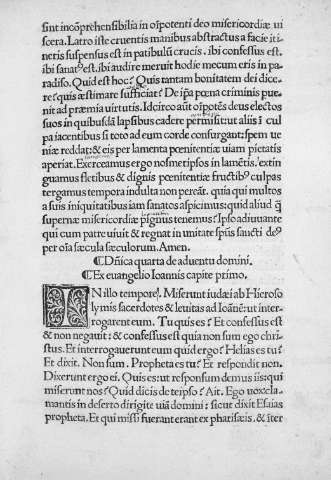 sint incõprehensibilia in oĩpotenti deo misericordiæ ui
scera. Latro iste cruentis manibus abstractus a facie iti=
neris suspensus est in patibulū crucis. ibi confessus est.
ibi sanatᵒ est. ibi audire meruit hodie mecum eris in pa=
radiso. Quid est hoc? Quis tantam bonitatem dei dice
re? quis æstimare sufficiat? De ipã pœna criminis perue
nit ad præmia uirtutis. Idcirco aūt oĩpotẽs deus electos
suos in quibusdã lapsibus cadere permisit: ut aliis ĩ cul
pa iacentibus si toto ad eum corde consurgant: spem ue
niæ reddat: & eis per lamenta pœnitentiæ uiam pietatis
aperiat. Exerceamus ergo nosmetipsos in lamẽtis. extin
guamus fletibus & dignis pœnitentiæ fructibᵒ culpas
tergamus tempora indulta non pereãt. quia qui multos
a suis iniquitatibus iam sanatos aspicimus: quid aliud q̃
supernæ misericordiæ pignus tenemus? Ipso adiuuante
qui cum patre uiuit & regnat in unitate spũs sancti deᵒ
per oĩa sæcula sæculorum. Amen.
¶ Dñica quarta de aduentu domini.
¶ Ex euangelio Ioannis capite primo.
IN illo tempore. Miserunt iudæi ab Hieroso
lymis sacerdotes & leuitas ad Ioãnẽ: ut inter=
rogarent eum. Tu quis es? Et confessus est
& non negauit: & confessus est quia non sum ego chri=
stus. Et interrogauerunt eum quid ergo? Helias es tu?
Et dixit. Non sum. Propheta es tu? Et respondit non.
Dixerunt ergo ei. Quis es: ut responsum demus iis: qui
miserunt nos? Quid dicis de teipso? Ait. Ego uox cla=
mantis in deserto dirigite uiã domini: sicut dixit Esaias
propheta. Et qui missi fuerant erant ex pharisæis. & ĩter